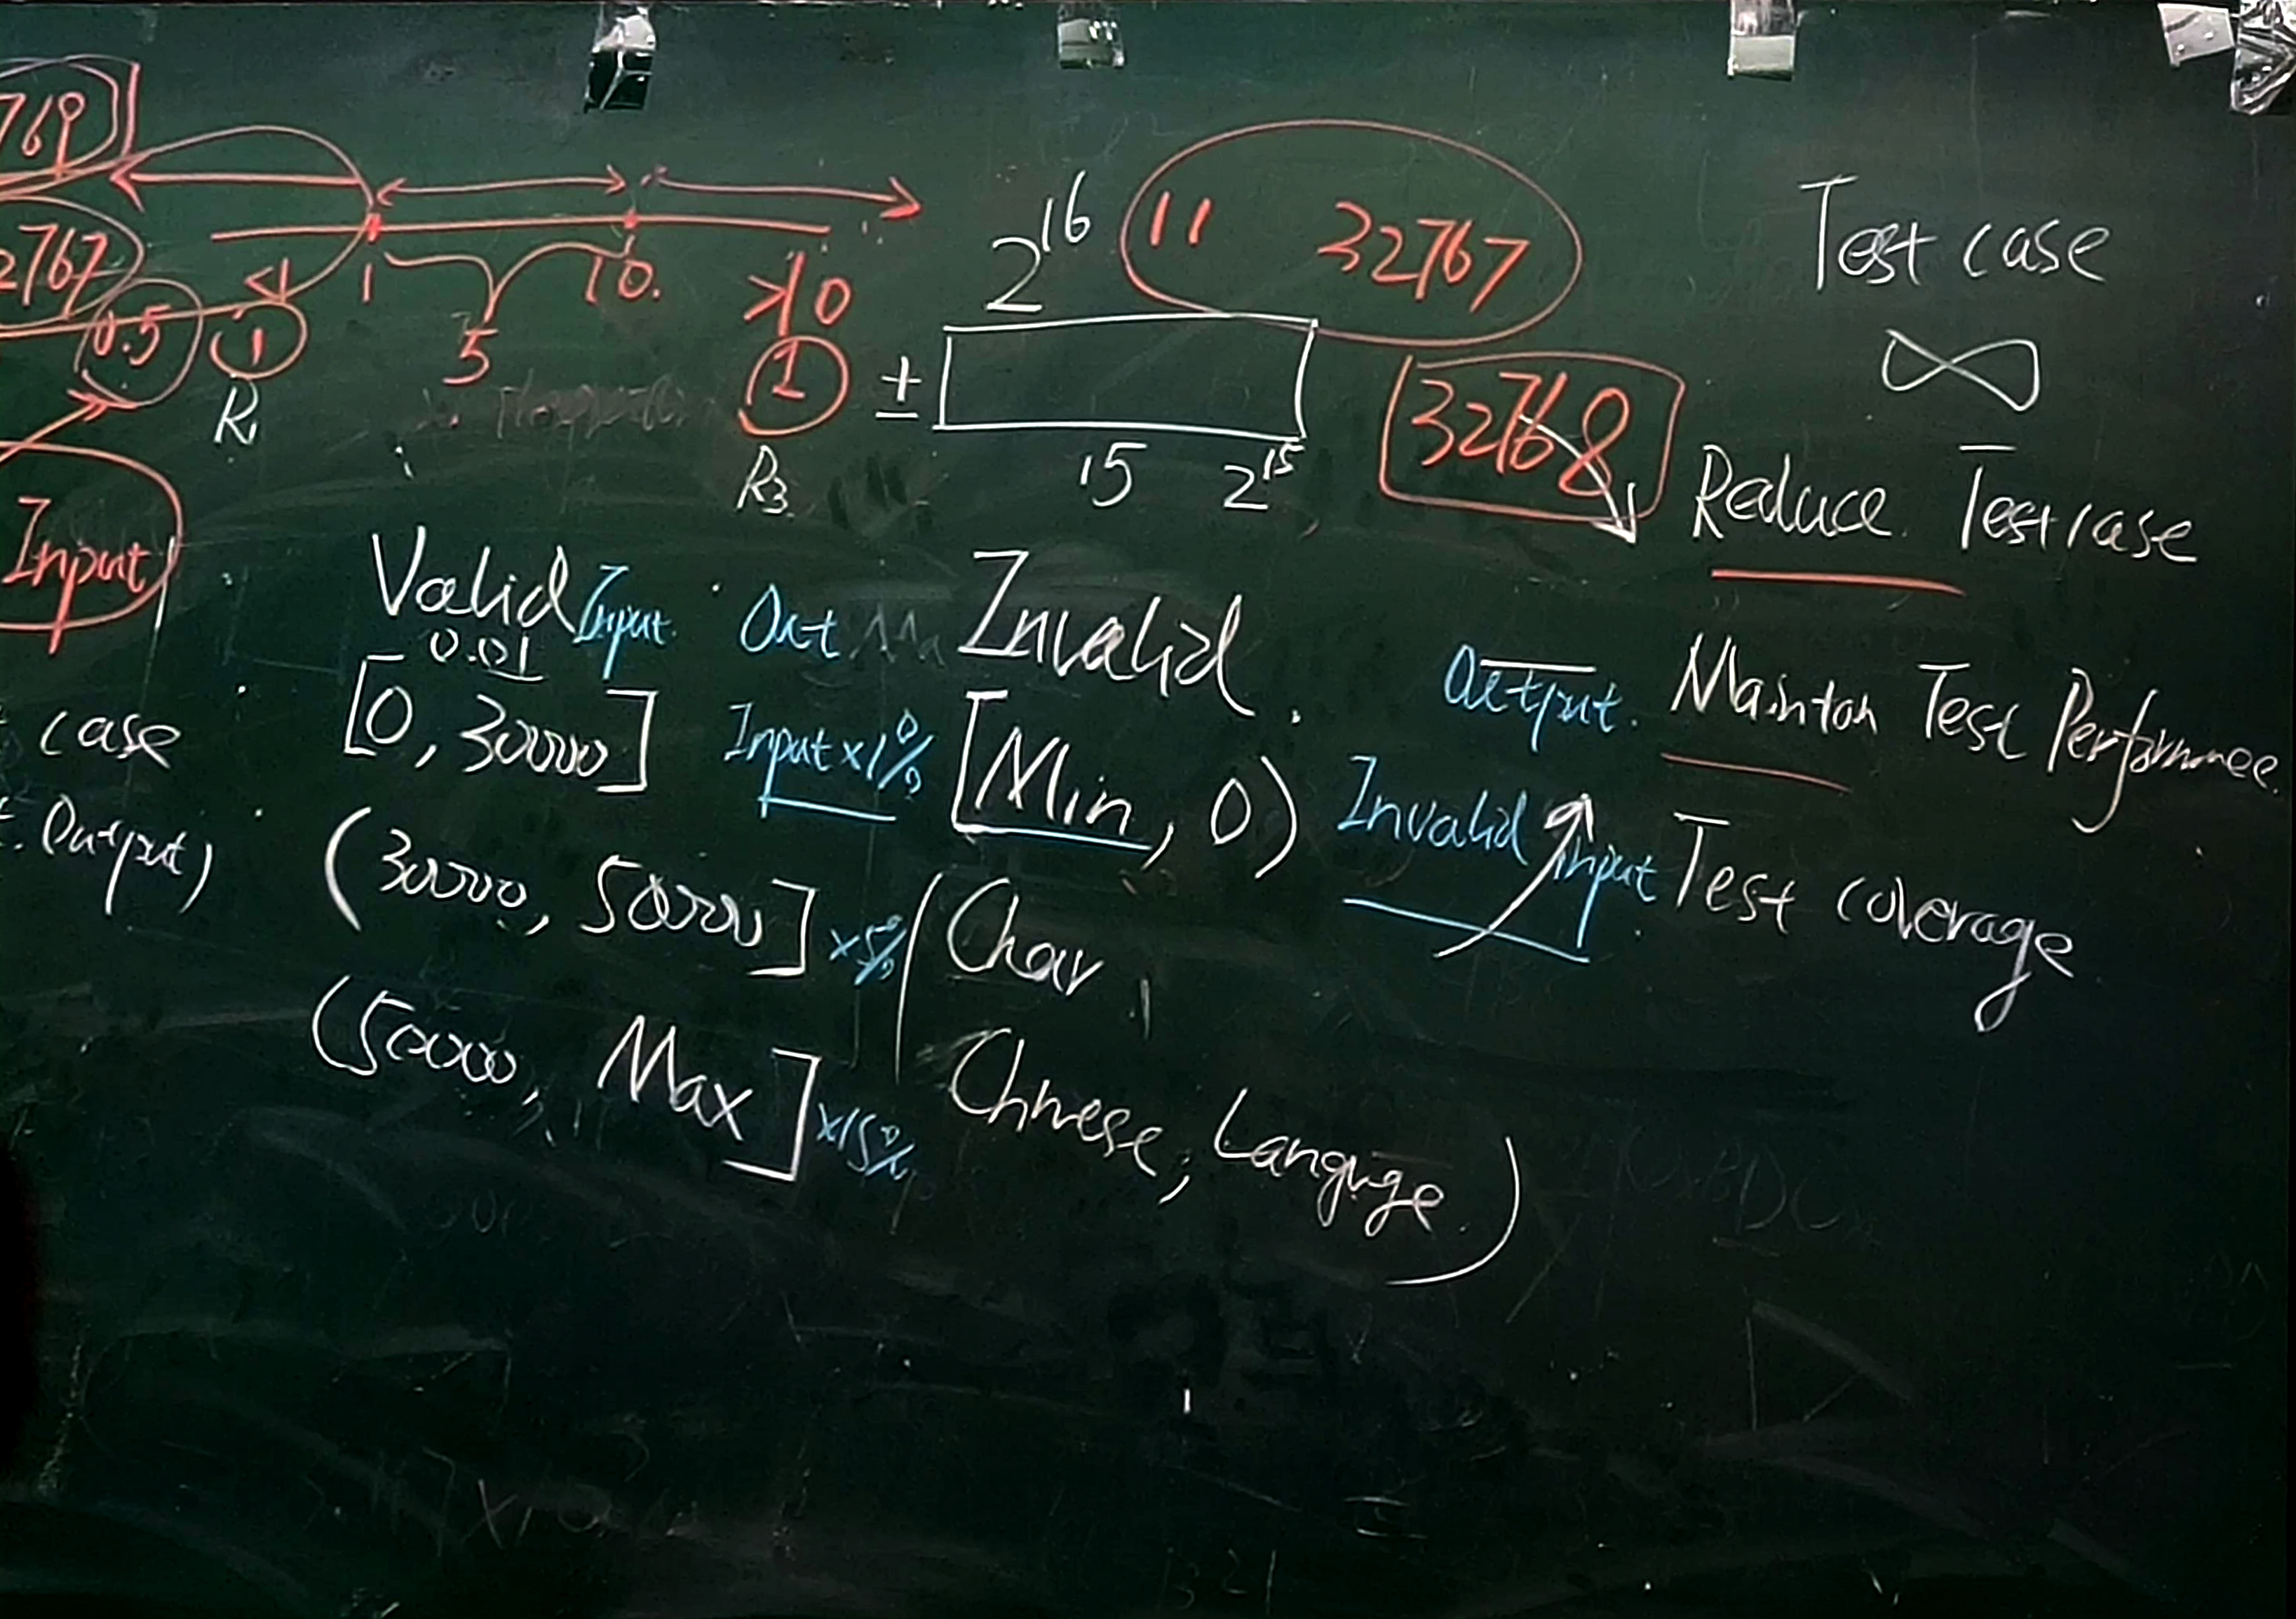 769
2767
0.5
<1
1
10.
>10
5
1
R1
1
R3
2^16
11 32767
±
15 2^15
32768
Test case
∞
Reduce Testcase
Input
Valid Input. Out Invalid.
0.01
[0, 30000] Input×1% [Min, 0) Invalid Input
Output. Maintan Test Performnce.
case
(30000, 50000] ×5% (Char,
Test coverage
t. Output)
(50000, Max] ×15% Chinese, Languge.)